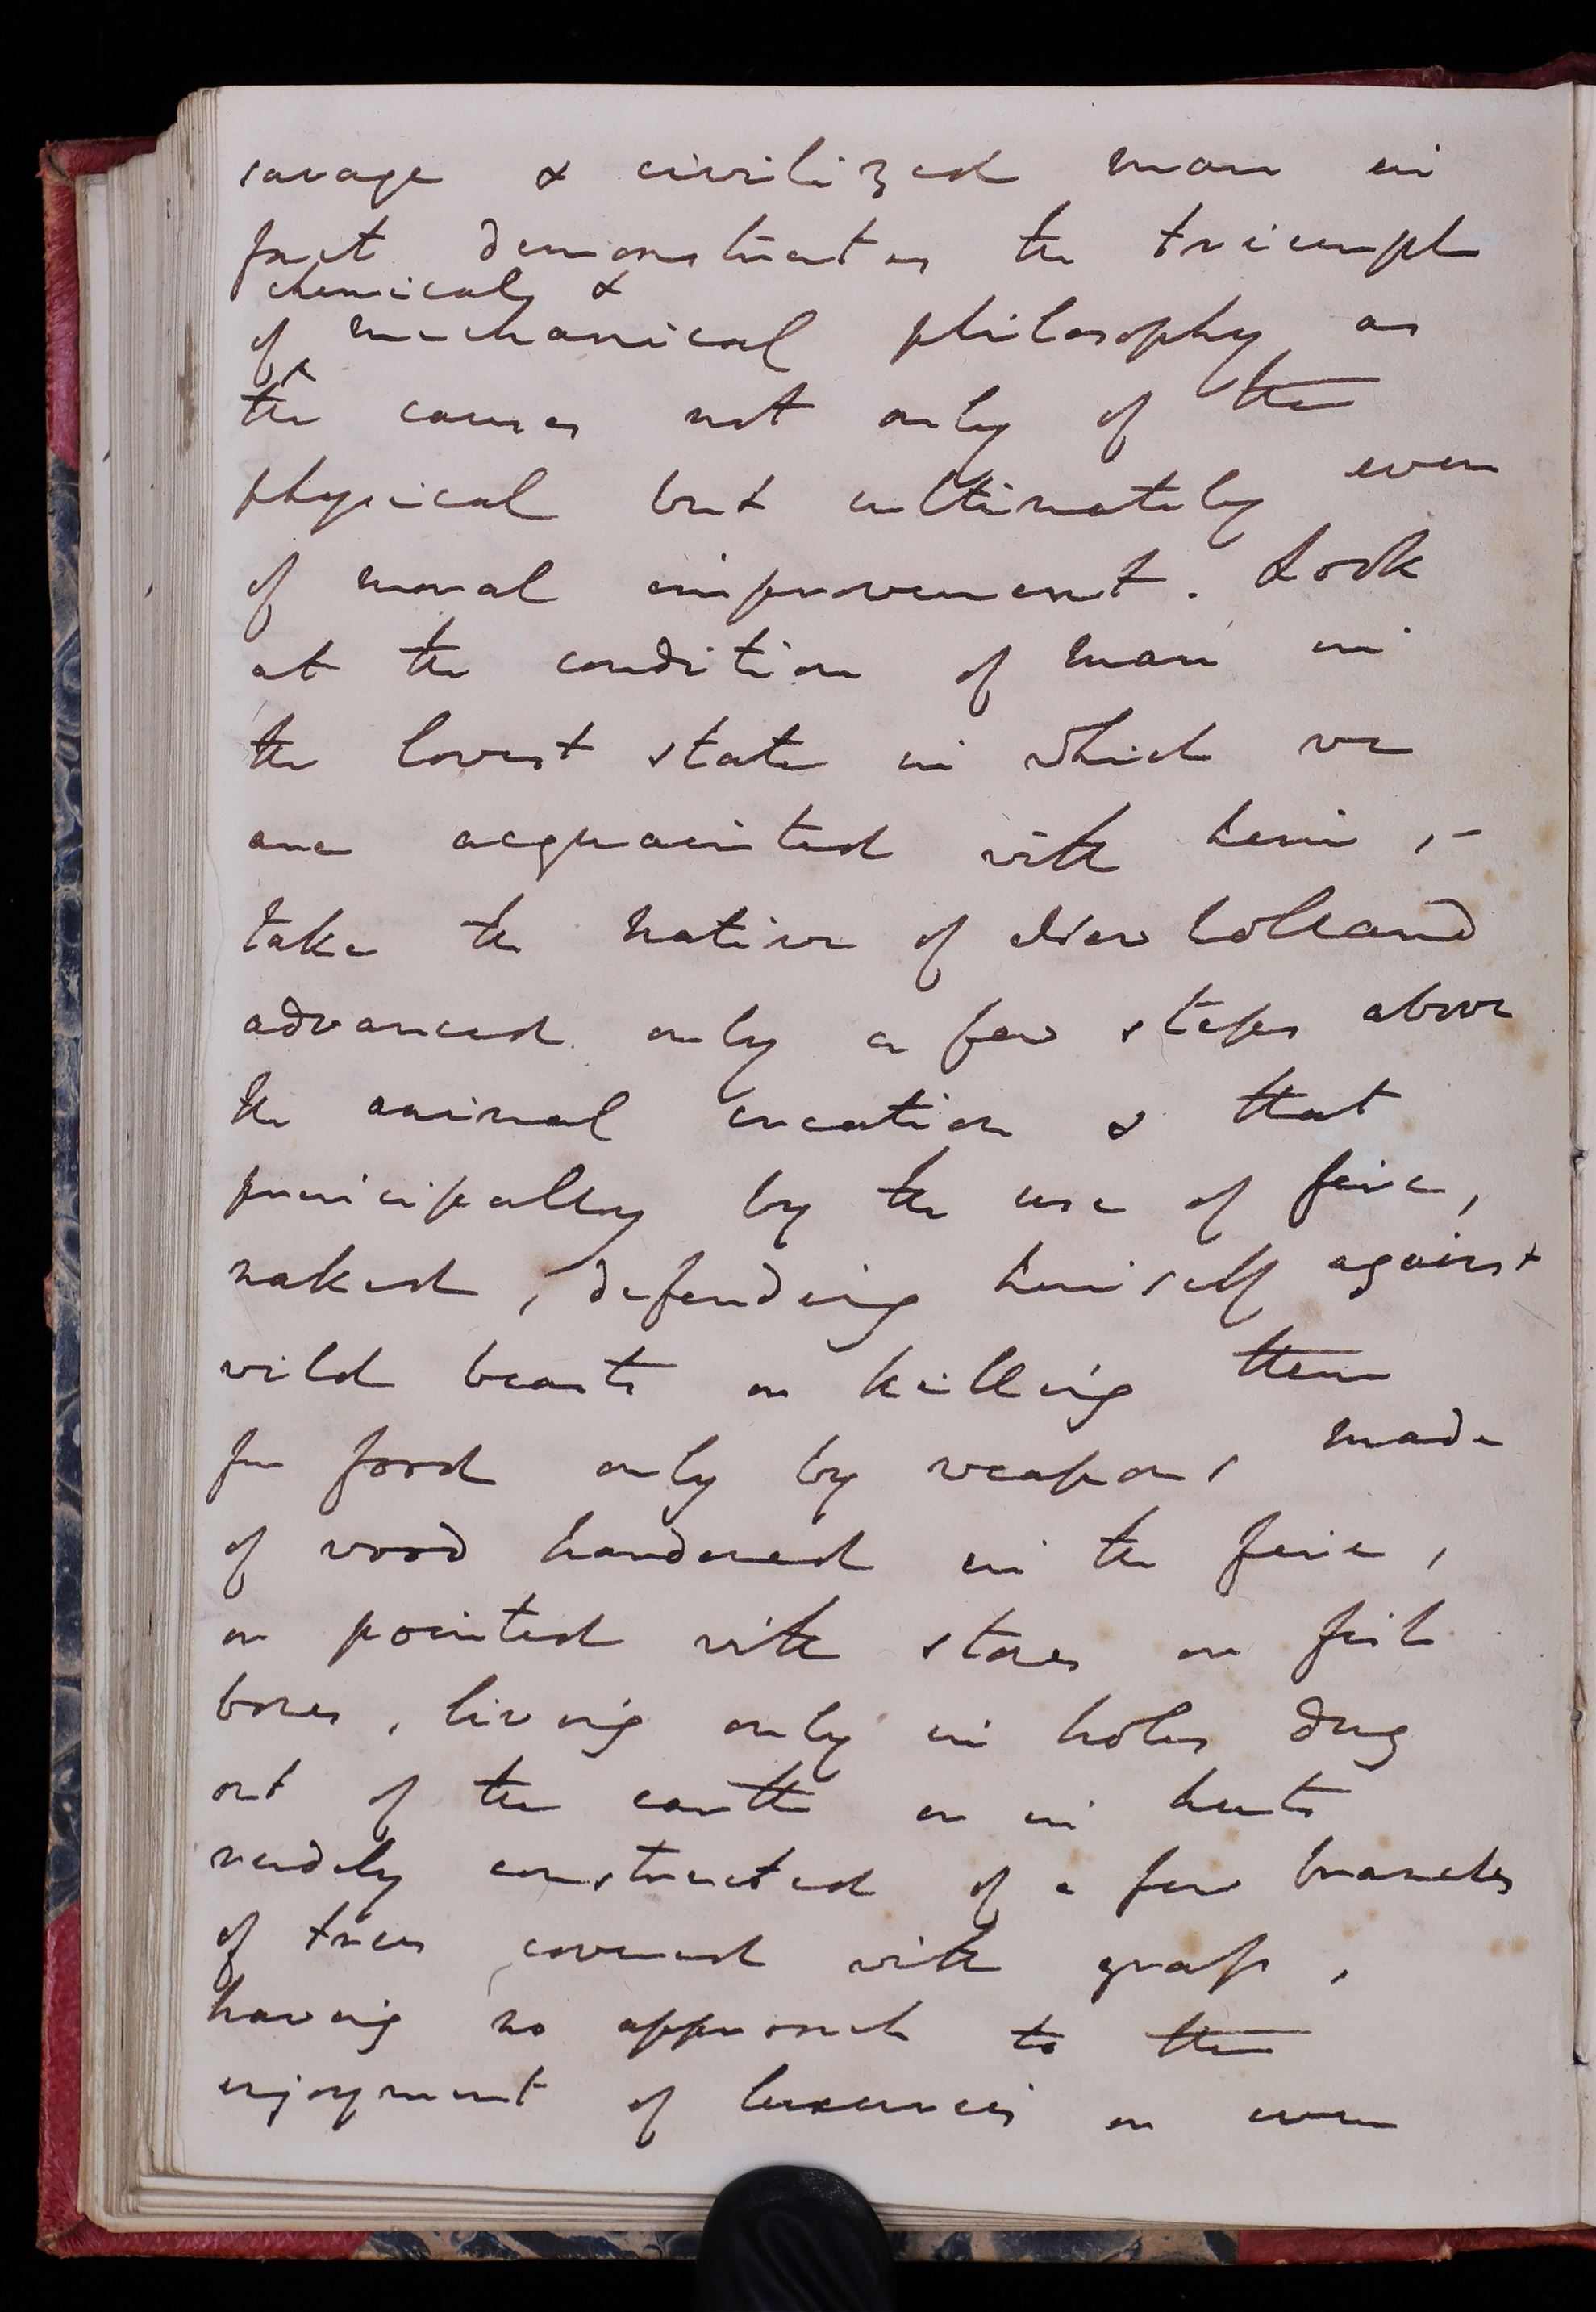 savage & civilized man in
fact demonstrates the triumph
chemical &
of mechanical philosophy as
the causes not only of the
physical but ultimately even
of moral improvement. Look
at the condition of man in
the lowest state in which we
are acquainted with him, -
take the native of New Holland
advanced only a few steps above
the animal creation & that
principally by the use of fire,
naked, defending himself against
wild beasts or killing them
for food only by weapons made
of wood hardened in the fire,
or pointed with stones or fish
bones, living only in holes dug
out of the earth or in huts
rudely constructed of a few branches
of trees covered with grass,
having no approach to the
enjoyment of luxuries or even